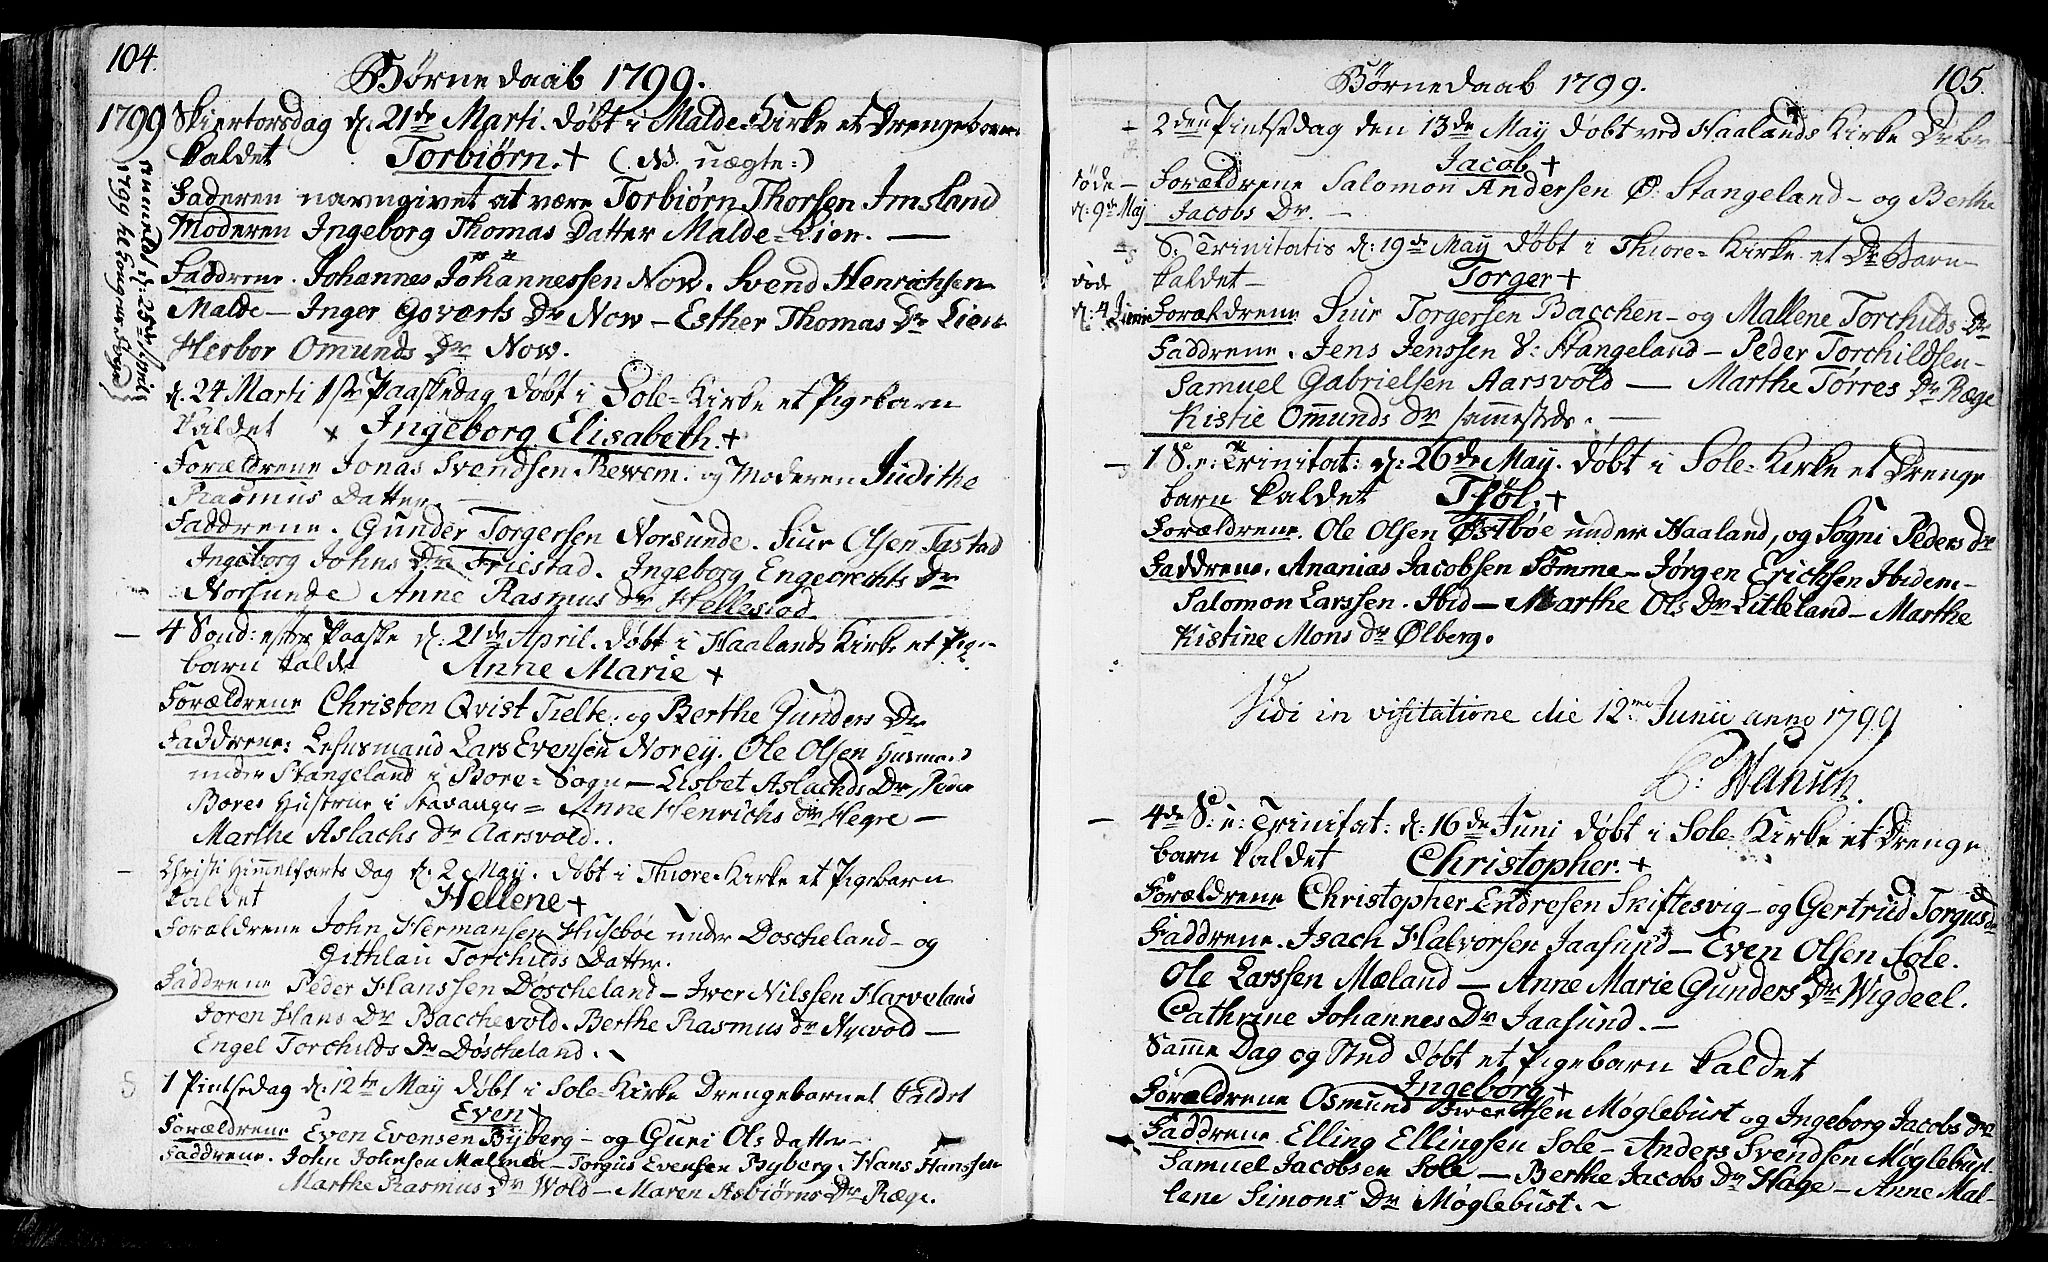 104.
Børnedaab 1799.
1799 Skiertorsdag d. 21de Marti. døbt i Malde-Kirke et Drengebarn
kaldet Torbiørn. + (NB. uægte:)
Faderen navngivet at være Torbiørn Thorsen Imsland
Moderen Ingeborg Thomas Datter Malde-Lien. —
Faddrene. Johannes Johannessen Now. Svend Henrichsen
Malde — Inger Goverts Dr Now — Esther Thomas Dr Lien
Herbor Omunds Dr Now.
d. 24 Marti 1ste Paaskedag døbt i Sole-Kirke et Pigebarn
kaldet Ingeborg Elisabeth. +
Forældrene Jonas Svendsen Rewem. og Moderen Judithe
Rasmus Datter. —
Faddrene. Gunder Torgersen Norsunde. Siur Olsen Tastad
Ingeborg Johns Dr Friestad. Ingeborg Engebrechts Dr
Norsunde Anne Rasmus Dr Hellestød
— 4 Sønd: efter Paaske d: 21de April. døbt i Haalands Kirke et Pige-
barn kaldt Anne Marie +
Forældrene Christen Qvist Tielte. og Berthe Gunders Dr
Faddrene: Lehnsmand Lars Evensen Norey. Ole Olsen Husmand
under Stangeland i Bore-Sogn — Lisbet Aslachds Dr Peder
Bores Hustrue i Stavanger = Anne Henrichs Dr Hegre —
Marthe Aslachs Dr Aarsvold..
— Christi Himmelfarts Dag d. 2 May. døbt i Thiore-Kirke et Pigebarn
kaldet Hellene +
Forældrene John Hermansen Husebøe under Doscheland — og
Githlau Torchilds Datter.
Faddrene Peder Hanssen Døscheland — Iver Nilssen Harveland
Joren Hans Dr Bacchevold. Berthe Rasmus Dr Nyevold —
Engel Torchilds Dr Døscheland. ~
1 Pintsedag d: 12te May døbt i Sole-Kirke Drengebarnet kaldet
Even +
Forældrene Even Evensen Byberg — og Guri Ols datter —
Faddrene. John Johnsen Malmein — Torgus Evensen Byberg. Hans Hanssen
Marthe Rasmus Dr Wold — Maren Asbiørns Dr Ræge.
105.
Børnedaab 1799.
2den Pintsedag den 13de May døbt ved Haalands Kirke
Jacob +
Forældrene Salomon Andersen Ø. Stangeland — og Berthe
Jacobs Dr. —
døde
d: 9de May
S. Trinitatis d: 19de May døbt i Thiore-Kirke et Dr Barn
kaldet — Torger +
døde
d: 4 Junii
Forældrene Siur Torgersen Bacchen — og Mallene Torchilds Dr
Faddrene. Jens Jenssen V: Stangeland — Peder Torchildsen
Samuel Gabrielsen Aarsvold — Marthe Tørres Dr Ræge
Kistie Omunds Dr sammesteds. —
— 1 S. e: Trinitat: d: 26de May. døbt i Sole-Kirke et Drenge
barn kaldet Tjøl. +
Forældrene. Ole Olsen Østbøe under Haaland, og Søgni Peders Dr
Faddrene. Ananias Jacobsen Tømme — Jørgen Erichsen Ibidem —
Salomon Larssen. Ibid — Marthe Ols Dr Litleland — Marthe
Kistine Mons Dr Ølberg.
Vidi in visitatione die 12me Junii anno 1799
— 4de S: e: Trinitat: d: 16de Juni døbt i Sole-Kirke et Drenge
barn kaldet Christopher. +
Forældrene Christopher Endresen Skiftesvig — og Gertrud Torgus Dr
Faddrene. Isach Halvorsen Jaasund — Even Olsen Sole.
Ole Larssen Mæland — Anne Marie Gunders Dr Wigdeel.
Cathrine Johannes Dr Jaasund. —
Samme Dag og Sted døbt et Pigebarn kaldet
Ingeborg +
Forældrene Osmund Iwersen Møglebust og Ingeborg Jacobs Dr
Faddrene. Elling Ellingsen Sole — Anders Svendsen Møglebust
Samuel Jacobsen Sole — Berthe Jacobs Dr Hage — Anne Mal-
lene Simons Dr Møglebust. ~